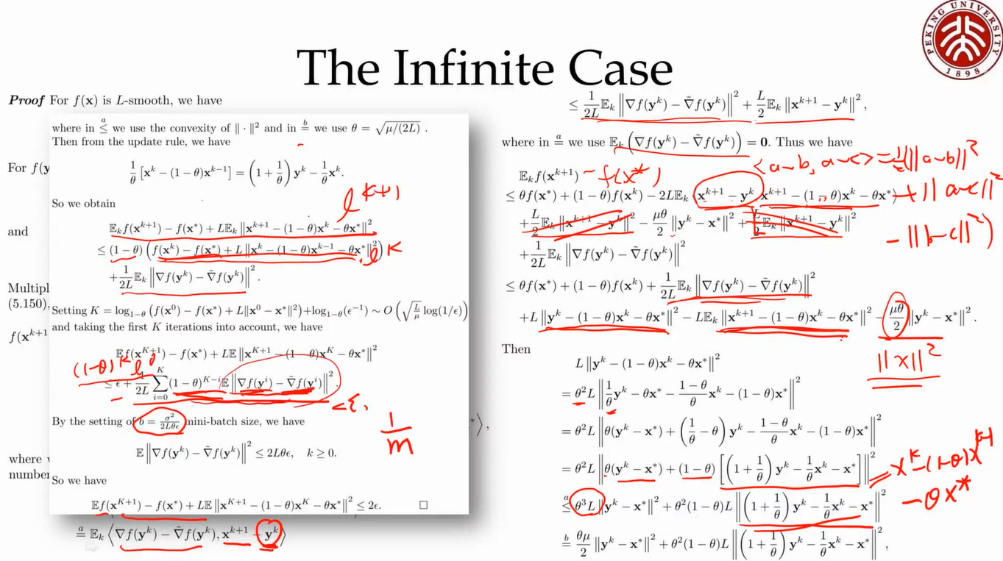 The Infinite Case
PEKING UNIVERSITY
1898
Proof For f(x) is L-smooth, we have
For f(y
and
Multipl
(5.150),
f(x^{k+1}
where
number
where in \overset{a}{≤} we use the convexity of ‖·‖² and in \overset{b}{=} we use θ = √(μ/(2L)) .
Then from the update rule, we have
\frac{1}{θ} [x^k − (1 − θ)x^{k−1}] = (1 + \frac{1}{θ}) y^k − \frac{1}{θ} x^k.
So we obtain
l^{k+1}
E_k f(x^{k+1}) − f(x*) + LE‖x^{k+1} − (1 − θ)x^k − θx*‖²
≤ (1 − θ) (f(x^k) − f(x*) + L‖x^k − (1 − θ)x^{k−1} − θx*‖²) l^k
+ \frac{1}{2L} E‖∇f(y^k) − \tilde{∇}f(y^k)‖².
Setting K = log_{1−θ}(f(x^0) − f(x*) + L‖x^0 − x*‖²) + log_{1−θ}(ϵ^{−1}) ∼ O(√(\frac{L}{μ}) log(1/ϵ))
and taking the first K iterations into account, we have
Ef(x^{K+1}) − f(x*) + LE‖x^{K+1} − (1 − θ)x^K − θx*‖²
(1−θ)^K l^0
≤ ϵ + \frac{1}{2L} \sum_{i=0}^{K} (1 − θ)^{K−i} E‖∇f(y^i) − \tilde{∇}f(y^i)‖².
< ε.
By the setting of b = \frac{σ²}{2Lθϵ} mini-batch size, we have
\frac{1}{m}
E‖∇f(y^k) − \tilde{∇}f(y^k)‖² ≤ 2Lθϵ, k ≥ 0.
So we have
Ef(x^{K+1}) − f(x*) + LE‖x^{K+1} − (1 − θ)x^K − θx*‖² ≤ 2ϵ. □
\overset{a}{=} E_k ⟨∇f(y^k) − \tilde{∇}f(y^k), x^{k+1} − y^k⟩
≤ \frac{1}{2L} E_k ‖∇f(y^k) − \tilde{∇}f(y^k)‖² + \frac{L}{2} E_k ‖x^{k+1} − y^k‖²,
where in \overset{a}{=} we use E_k (∇f(y^k) − \tilde{∇}f(y^k)) = 0. Thus we have
<a−b, a−c> = \frac{1}{2}(‖a−b‖²
+ ‖a−c‖²
− ‖b−c‖²)
E_k f(x^{k+1}) − f(x*)
≤ θf(x*) + (1 − θ)f(x^k) − 2LE_k ⟨x^{k+1} − y^k, x^{k+1} − (1 − θ)x^k − θx*⟩
+ \frac{L}{2} E_k ‖x^{k+1} − y^k‖² − \frac{μθ}{2} ‖y^k − x*‖² + \frac{L}{2} E_k ‖x^{k+1} − y^k‖²
+ \frac{1}{2L} E_k ‖∇f(y^k) − \tilde{∇}f(y^k)‖²
≤ θf(x*) + (1 − θ)f(x^k) + \frac{1}{2L} E_k ‖∇f(y^k) − \tilde{∇}f(y^k)‖²
+L ‖y^k − (1 − θ)x^k − θx*‖² − LE_k ‖x^{k+1} − (1 − θ)x^k − θx*‖² − \frac{μθ}{2} ‖y^k − x*‖².
‖x‖²
Then
L ‖y^k − (1 − θ)x^k − θx*‖²
= θ²L ‖\frac{1}{θ} y^k − \frac{1 − θ}{θ} x^k − x*‖²
= θ²L ‖θ(y^k − x*) + (\frac{1}{θ} − θ) y^k − \frac{1 − θ}{θ} x^k − (1 − θ)x*‖²
= θ²L ‖θ(y^k − x*) + (1 − θ) [(1 + \frac{1}{θ}) y^k − \frac{1}{θ} x^k − x*]‖²
x^k − (1−θ)x^{k−1}
− θx*
\overset{a}{≤} θ³L ‖y^k − x*‖² + θ²(1 − θ)L ‖(1 + \frac{1}{θ}) y^k − \frac{1}{θ} x^k − x*‖²
\overset{b}{=} \frac{θμ}{2} ‖y^k − x*‖² + θ²(1 − θ)L ‖(1 + \frac{1}{θ}) y^k − \frac{1}{θ} x^k − x*‖²,